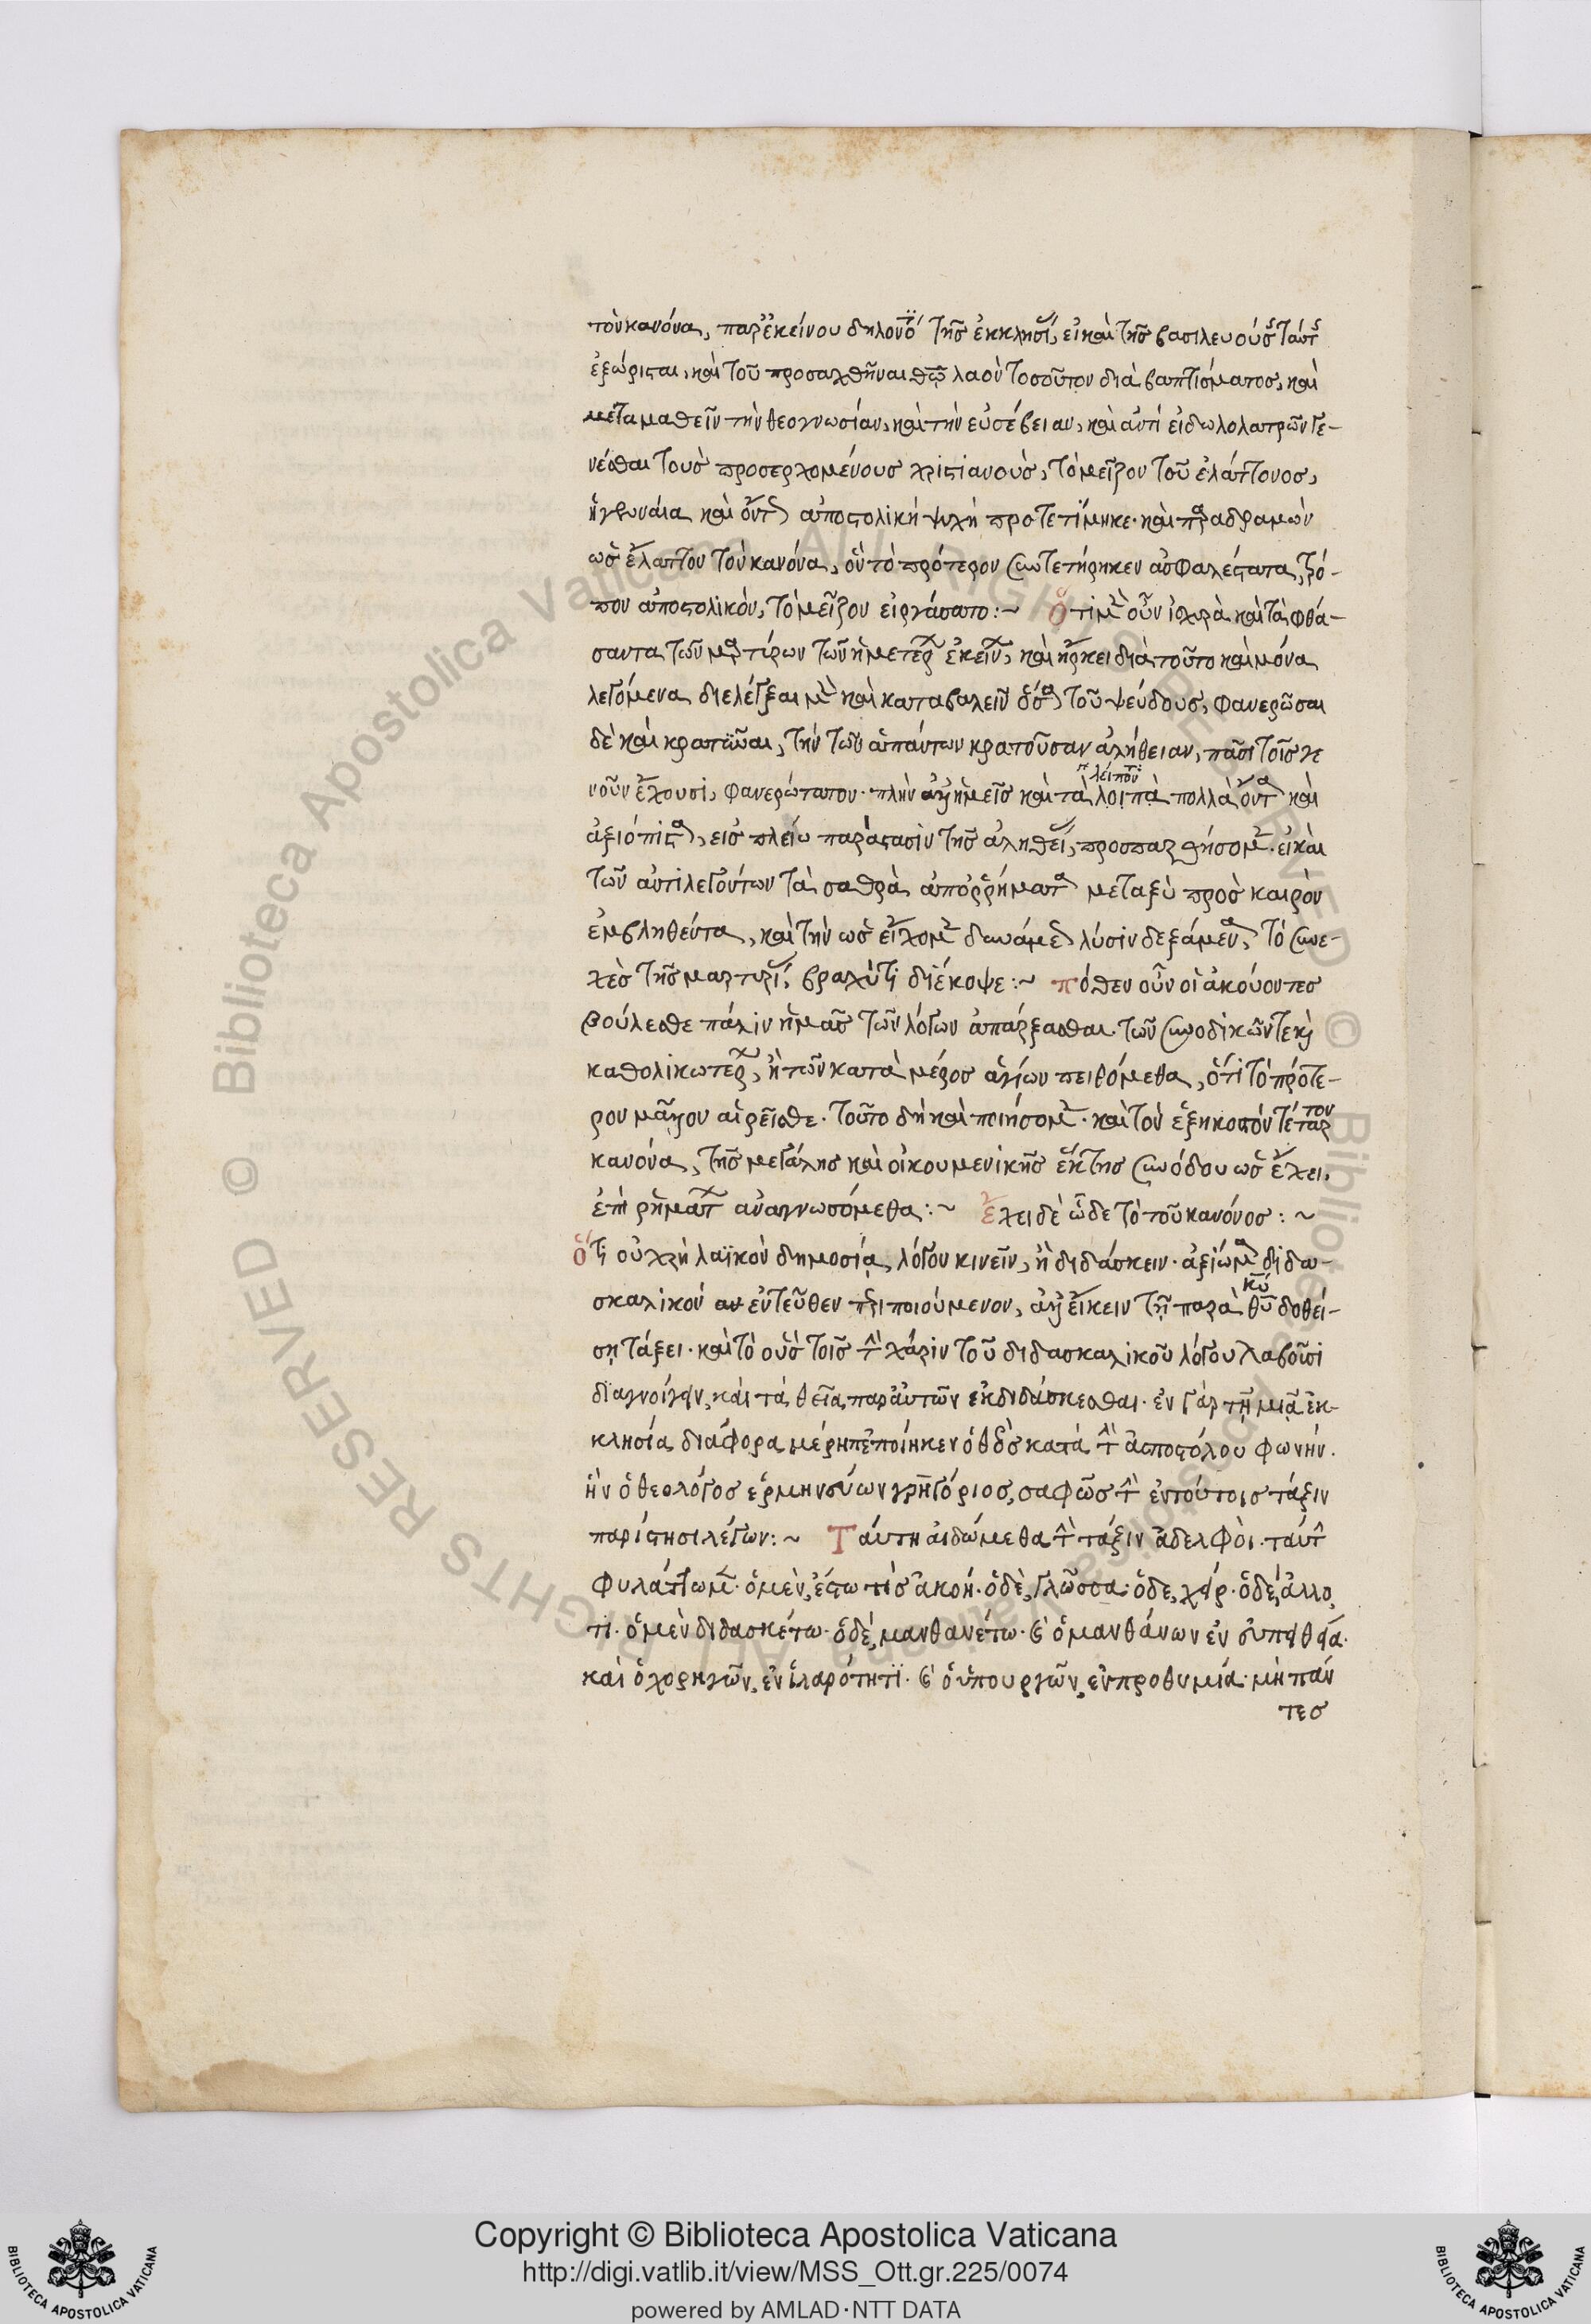 τὸν κανόνα, παρ' ἐκείνου δηλονό τῆς ἐκκλησί, εἰ καὶ τῆς βασιλευούσ ταύτ
ἐξώρισται, καὶ τοῦ προσαχθῆναι θῶ λαὸν τοσοῦτον διὰ βαπτίσματος, καὶ
μετὰ μαθεῖν τὴν θεογνωσίαν, καὶ τὴν εὐσέβειαν, καὶ ἀντὶ εἰδωλολατρῶν γε-
νέσθαι τοὺς προσερχομένους χριστιανοὺς, τὸ μεῖζον τοῦ ἐλάττονος,
ἡ γενναία καὶ ὄντ ἀποστολικὴ ψυχὴ προτετίμηκε· καὶ παραδραμὼν
ὡς ἔλαττον τὸν κανόνα, ὃν τὸ πρότερον συνετήρηκεν ἀσφαλέστατα, τρό-
πον ἀποστολικὸν, τὸ μεῖζον εἰργάσατο:~ ὅτι μὲν οὖν ἰσχυρὰ καὶ τὰ φθά-
σαντα τῶν μαρτύρων τῶν ἡμετέρ ἐκείν, καὶ ἤρκει διὰ τοῦτο καὶ μόνα
λεγόμενα διελέγξαι μὲν καὶ καταβαλεῖν τοῦ ψεύδους, φανερῶσαι
δὲ καὶ κρατῦναι, τὴν τῶν ἁπάντων κρατοῦσαν ἀλήθειαν, πᾶσι τοῖς γε
νοῦν ἔχουσι, φανερώτατον· πλὴν ἀλλ' ἡμεῖς καὶ τὰ λοιπὰ πολλὰ ὄντα καὶ
ἀξιόπιστα, εἰς πλείω παράστασιν τῆς ἀληθεί, προσπαρθήσομ· εἰ καὶ
τῶν ἀντιλεγόντων τὰ σαθρὰ ἀπορρήματ μεταξὺ πρὸς καιρὸν
ἐμβληθέντα, καὶ τὴν ὡς εἴχομ δυνάμε λύσιν δεξάμενα, τὸ συνε-
χὲς τῆς μαρτυρί, βραχύ τι διέκοψε:~ πόθεν οὖν οἱ ἀκούοντες
βούλεσθε πάλιν ἡμᾶς τῶν λόγων ἀπάρξασθαι. τῶν συνοδικῶν τε καὶ
καθολικωτέρ, ἢ τῶν κατὰ μέρος ἁγίων πειθόμεθα, ὅτι τὸ πρότε-
ρον μᾶλλον αἱρεῖσθε· τοῦτο δὴ καὶ ποιήσομ· καὶ τὸν ἑξηκοστὸν τέταρτον
κανόνα, τῆς μεγάλης καὶ οἰκουμενικῆς ἕκτης συνόδου ὡς ἔχει,
ἐπὶ ῥημάτ ἀναγνωσόμεθα:~ ἔχει δὲ ὧδε τὸ τοῦ κανόνος:~
ὅτι οὐ χρὴ λαϊκὸν δημοσία, λόγον κινεῖν, ἢ διδάσκειν· ἀξίωμα διδα-
σκαλικὸν ἐντεῦθεν περιποιούμενον, ἀλλ' εἴκειν τῆ παρὰ θυ κυ δοθεί-
ση τάξει· καὶ τὸ οὖς τοῖς τὴν χάριν τοῦ διδασκαλικοῦ λόγου λαβοῦσι
διανοίγειν, καὶ τὰ θεῖα παρ' αὐτῶν ἐκδιδάσκεσθαι· ἐν γὰρ τῆ μιᾶ ἐκ-
κλησία διάφορα μέρη πεποίηκεν ὁ θς κατὰ τὴν ἀποστόλου φωνήν.
ἣν ὁ θεολόγος ἑρμηνεύων γρηγόριος, σαφῶς τὴν ἐν τούτοις τάξιν
παρίστησι λέγων:~ Ταύτην αἰδώμεθα τὴν τάξιν ἀδελφοὶ· ταύτην
φυλάττωμεν· ὁ μὲν, ἔστω τίς ἀκοή· ὁ δὲ, γλῶσσα· ὁ δὲ, χείρ· ὁ δὲ, ἄλλο,
τι· ὁ μὲν διδασκέτω· ὁ δέ, μανθανέτω· καὶ ὁ μανθάνων ἐν εὐπειθεία·
καὶ ὁ χορηγῶν, ἐν ἱλαρότητι· καὶ ὁ ὑπουργῶν, ἐν προθυμία· μὴ πάν
τες
© Biblioteca Apostolica Vaticana ALL RIGHTS RESERVED
© Biblioteca Apostolica Vaticana ALL RIGHTS RESERVED
Copyright © Biblioteca Apostolica Vaticana
http://digi.vatlib.it/view/MSS_Ott.gr.225/0074
powered by AMLAD·NTT DATA
BIBLIOTECA APOSTOLICA VATICANA
BIBLIOTECA APOSTOLICA VATICANA